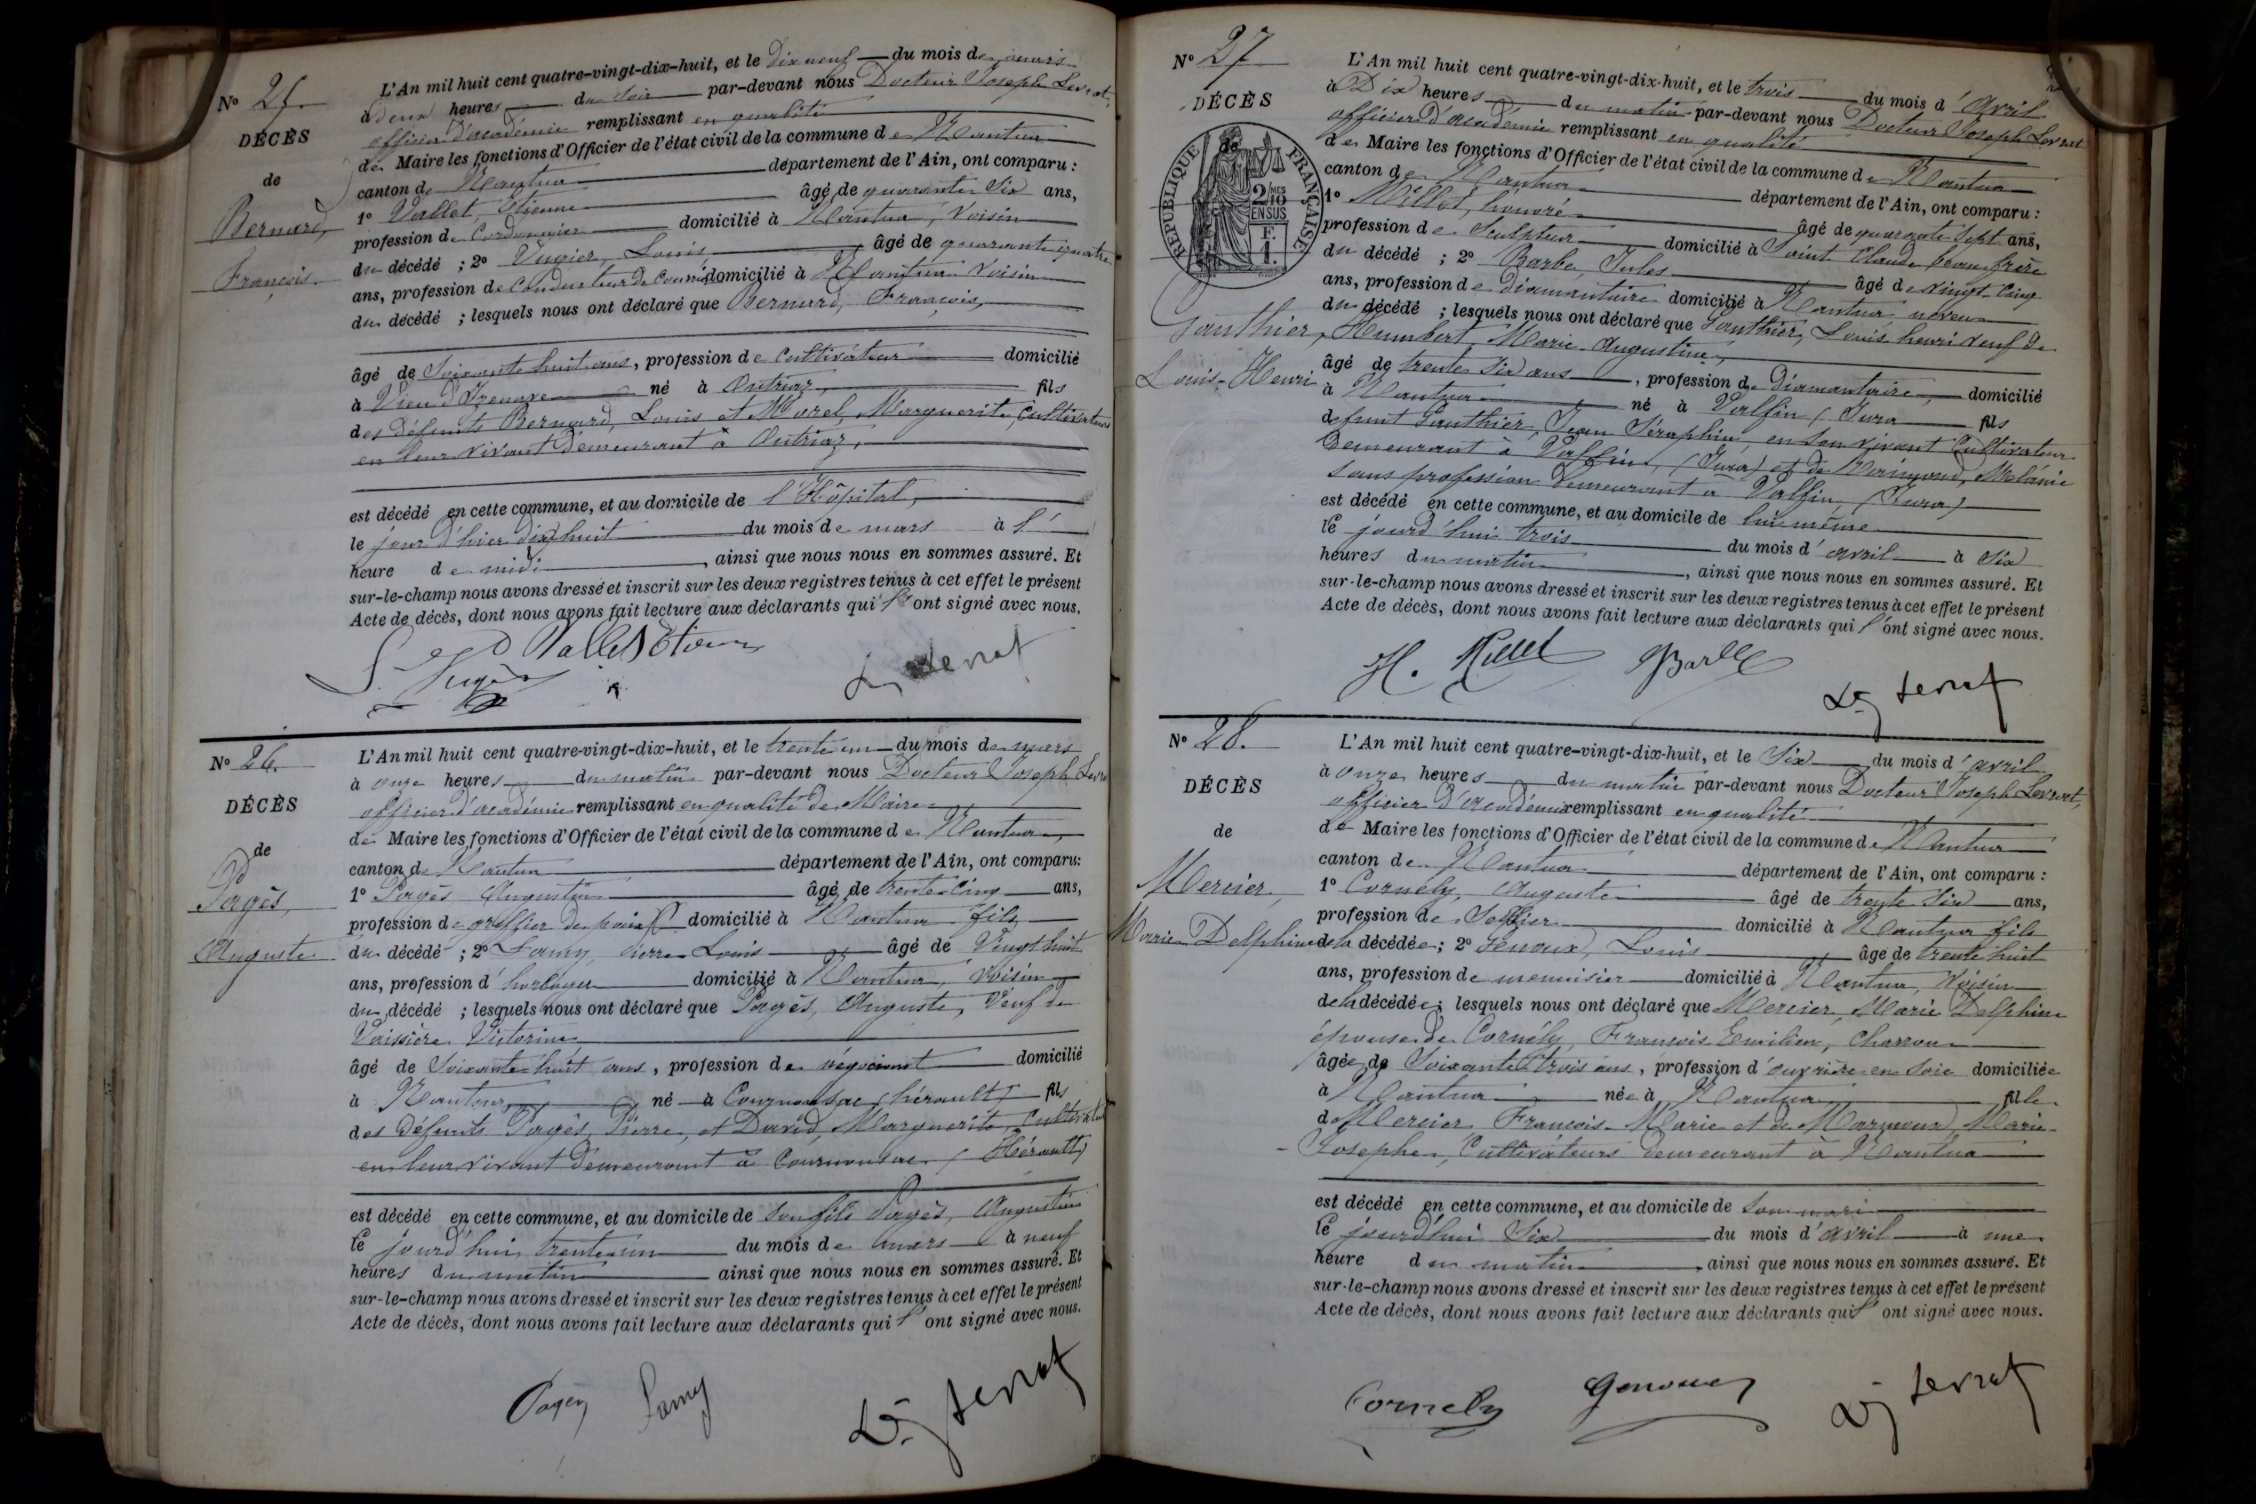 N° 25.
DÉCÈS
de
Bernard,
François.
L'An mil huit cent quatre-vingt-dix-huit, et le dix neuf du mois de mars
à deux heures du soir par-devant nous Docteur Joseph Levrat,
officier d'académie remplissant en qualité
de Maire les fonctions d'Officier de l'état civil de la commune de Nantua
canton de Nantua département de l'Ain, ont comparu :
1° Vallet, Etienne âgé de quarante six ans,
profession de Cordonnier domicilié à Nantua, voisin
du décédé ; 2° Louis âgé de quarante quatre
ans, profession de Conducteur de domicilié à Nantua voisin
du décédé ; lesquels nous ont déclaré que Bernard, François,
âgé de soixante huit ans, profession de Cultivateur domicilié
à Vieu d'Izenave né à Outriaz, fils
des défunts Bernard, Louis et Morel, Marguerite, Cultivateurs
en leur vivant demeurant à Outriaz,
est décédé en cette commune, et au domicile de l'Hôpital,
le jour d'hier dix huit du mois de mars à l'
heure de midi, ainsi que nous nous en sommes assuré. Et
sur-le-champ nous avons dressé et inscrit sur les deux registres tenus à cet effet le présent
Acte de décès, dont nous avons fait lecture aux déclarants qui l'ont signé avec nous.
Vallet Etienne
Dr J Levrat
N° 26.
DÉCÈS
de
Pagès,
Auguste
L'An mil huit cent quatre-vingt-dix-huit, et le trente un du mois de mars
à onze heures du matin par-devant nous Docteur Joseph Levrat
officier d'académie remplissant en qualité de Maire
de Maire les fonctions d'Officier de l'état civil de la commune de Nantua,
canton de Nantua département de l'Ain, ont comparu:
1° Pagès Augustin âgé de trente cinq ans,
profession de greffier de paix domicilié à Nantua fils
du décédé ; 2° Famy, Pierre Louis âgé de Vingt huit
ans, profession d'horloger domicilié à Nantua, voisin
du décédé ; lesquels nous ont déclaré que Pagès, Auguste, Veuf de
Vaissière Victorine,
âgé de Soixante huit ans, profession de négociant domicilié
à Nantua, né à Cournonsac (hérault) fils
des défunts Pagès, Pierre, et David, Marguerite, cultivateurs
en leur vivant demeurant à Cournonsac (Hérault)
est décédé en cette commune, et au domicile de son fils Pagès, Augustin
le jourd'hui trente un du mois de mars à neuf
heures du matin ainsi que nous nous en sommes assuré. Et
sur-le-champ nous avons dressé et inscrit sur les deux registres tenus à cet effet le présent
Acte de décès, dont nous avons fait lecture aux déclarants qui l'ont signé avec nous.
Pagès Famy
Dr J Levrat
N° 27
DÉCÈS
de
RÉPUBLIQUE FRANÇAISE
2/10 MES
EN SUS
F.
1.
Gauthier,
Louis-Henri
L'An mil huit cent quatre-vingt-dix-huit, et le trois du mois d'avril
à Dix heures du matin par-devant nous Docteur Joseph Levrat
officier d'académie remplissant en qualité
de Maire les fonctions d'Officier de l'état civil de la commune de Nantua
canton de Nantua département de l'Ain, ont comparu :
1° Millet, honoré âgé de quarante sept ans,
profession de Sculpteur domicilié à Saint Claude beau frère
du décédé ; 2° Barbe, Jules âgé de vingt-cinq
ans, profession de diamantaire domicilié à Nantua neveu
du décédé ; lesquels nous ont déclaré que Gauthier, Louis henri veuf de
Humbert, Marie Augustine,
âgé de trente six ans, profession de Diamantaire, domicilié
à Nantua né à Valfin (Jura fils
défunt Gauthier, Jean Séraphin, en son vivant Cultivateur
demeurant à Valfin, (Jura) et de Mélanie
sans profession demeurant à Valfin, (Jura)
est décédé en cette commune, et au domicile de lui même
le jourd'hui trois du mois d'avril à six
heures du matin, ainsi que nous nous en sommes assuré. Et
sur-le-champ nous avons dressé et inscrit sur les deux registres tenus à cet effet le présent
Acte de décès, dont nous avons fait lecture aux déclarants qui l'ont signé avec nous.
H. Millet Barbe
Dr J Levrat
N° 28.
DÉCÈS
de
Mercier,
Marie Delphine
L'An mil huit cent quatre-vingt-dix-huit, et le Six du mois d'avril
à onze heures du matin par-devant nous Docteur Joseph Levrat,
officier d'académie remplissant en qualité
de Maire les fonctions d'Officier de l'état civil de la commune de Nantua
canton de Nantua département de l'Ain, ont comparu :
1° Cornély, Auguste âgé de trente six ans,
profession de Sellier domicilié à Nantua fils
de la décédée ; 2° Genoux, Louis âgé de trente huit
ans, profession de menuisier domicilié à Nantua, voisin
de la décédée ; lesquels nous ont déclaré que Mercier, Marie Delphine
épouse de Cornély, François Emilien, Charron
âgée de Soixante trois ans, profession d'ouvrière en soie domiciliée
à Nantua née à Nantua fille
de Mercier François-Marie et de Marie-
Josephe, Cultivateurs demeurant à Nantua
est décédé en cette commune, et au domicile de son mari
le jourd'hui Six du mois d'avril à une
heure du matin, ainsi que nous nous en sommes assuré. Et
sur-le-champ nous avons dressé et inscrit sur les deux registres tenus à cet effet le présent
Acte de décès, dont nous avons fait lecture aux déclarants qui l'ont signé avec nous.
Cornely Genoux
Dr J Levrat